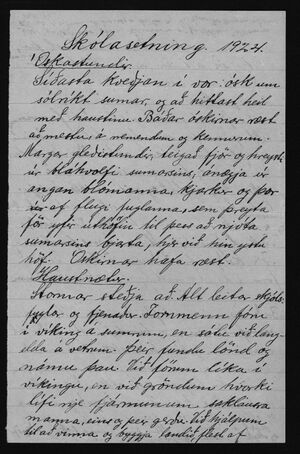 Skólasetning 1924.
Óskastundir.
Síðasta kveðjan í vor: ósk um
sólríkt sumar, og að hittast heil
með haustinu. Báðar óskirnar ræst
að mestu, á nemendum og kennurum.
Margar gleðistundir, teigað fjör og hreysti
úr blátærum sumarsins, andæja úr
angan blómanna, kjarkur og þor
úr af flugi fuglanna, sem þreyta
för yfir úthöfin til þess að njóta
sumarsins bjarta, hjer við hin ystu
höf. Óskirnar hafa ræst.
Haustnætur.
Stormar steðja að. Alt leitar skjóls,
fuglar og fjenaður. Fornmenn fóru
í víking á sumrum, en sátu við
elda á vetrum. Þeir fundu lönd og
námu þau. Við förum líka í
víkingu, en við gröndum hvorki
lífi nje fjármunum saklausra
manna, eins og þeir gerðu. Við hjálpum
til að vinna og byggja landið, flest af